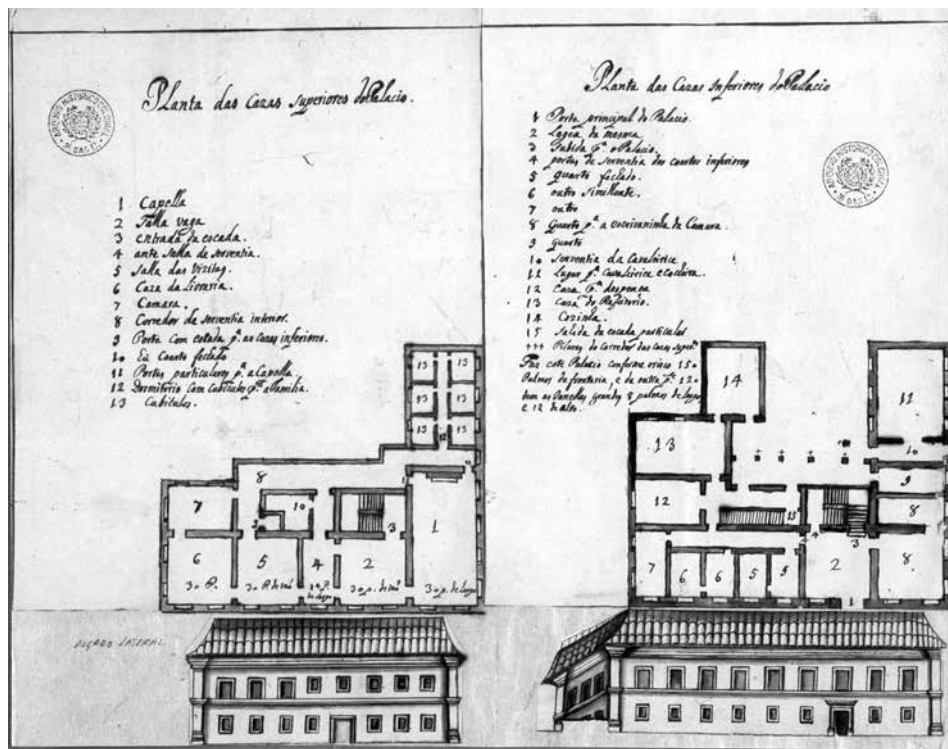 Planta das Cazas superiores do Palacio.
1 Capella
2 Salla vaga
3 entrada da escada.
4 ante Salla de serventia.
5 Salla das Vizitas.
6 Caza da Livraria.
7 Camara.
8 Corredor de serventia interior.
9 Porta com escada pª. as cazas inferiores.
10 Quarto fechado
11 Portas particulares pª. a Capella
12 Dormitorio com Cubiculos pª. a Familia.
13 Cubiculos.
13 13
13 13
13 13
12
8
7
10
9
3
1
6
5
4
2
30 P.
30 P. de
30 p. de
30 p. de largo
ALÇADO LATERAL
Planta das Cazas Inferiores do Palacio
1 Porta principal do Palacio.
2 Logea da mesma
3 Subida pª. o Palacio.
4 portas de serventia dos quartos inferiores
5 quarto fechado.
6 outro simillante.
7 outro
8 Quarto pª. a escrivaninha da Camara.
9 quarto
10 serventia da Cavalarica
11 Lugar pª. Cavalarica e Cocheira.
12 Caza pª. despensa
13 Caza do Refeitorio.
14 Cozinha.
15 Sahida da escada particular
††† Pilares do Corredor das cazas super.
Faz este Palacio conforme o risco 150
Palmos de frontaria, e da outra pª. 12
tem as Janellas grandes 8 palmos de largo
e 12 de alto.
14
11
13
10
9
12
15
8
4
3
7
6
6
5
5
2
8
1